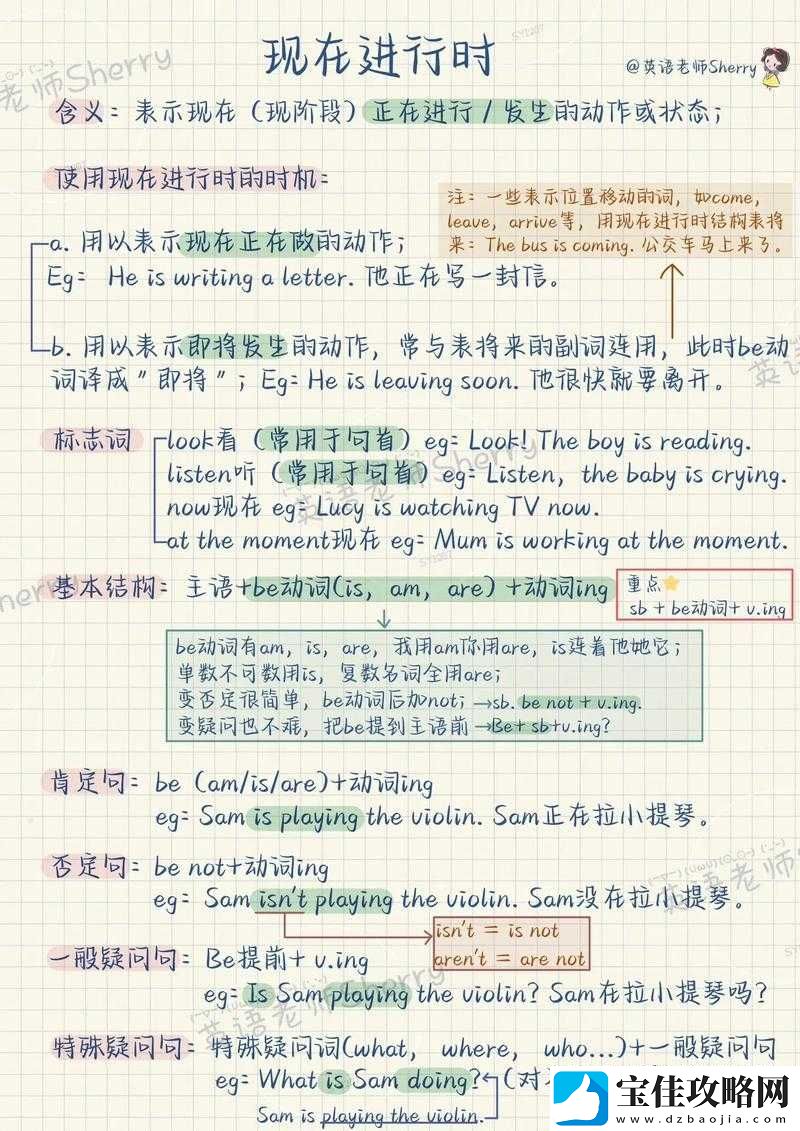 现在进行时
@英语老师Sherry
含义：表示现在（现阶段）正在进行/发生的动作或状态；
使用现在进行时的时机：
注：一些表示位置移动的词，如come，
leave，arrive等，用现在进行时结构表将
来：The bus is coming. 公交车马上来了。
a. 用以表示现在正在做的动作；
Eg： He is writing a letter. 他正在写一封信。
b. 用以表示即将发生的动作，常与表将来的副词连用，此时be动
词译成"即将"；Eg：He is leaving soon. 他很快就要离开。
标志词
look看（常用于句首）eg：Look! The boy is reading.
listen听（常用于句首）eg：Listen，the baby is crying.
now现在 eg：Lucy is watching TV now.
at the moment现在 eg：Mum is working at the moment.
基本结构：主语+be动词(is，am，are)+动词ing
重点⭐
sb + be动词+ v.ing
be动词有am，is，are，我用am你用are，is连着他她它；
单数不可数用is，复数名词全用are；
变否定很简单，be动词后加not；→sb. be not + v.ing.
变疑问也不难，把be提到主语前→Be+ sb+v.ing?
肯定句：be（am/is/are)+动词ing
eg：Sam is playing the violin. Sam正在拉小提琴。
否定句：be not+动词ing
eg：Sam isn't playing the violin. Sam没在拉小提琴。
isn't = is not
aren't = are not
一般疑问句：Be提前+ v.ing
eg：Is Sam playing the violin? Sam在拉小提琴吗？
特殊疑问句：特殊疑问词(what， where， who...)+一般疑问句
eg：What is Sam doing? (对
Sam is playing the violin.
宝佳攻略网
www.dzbaojia.com
英语老师Sherry
老师Sherry
英语老师Sherry
SYI207